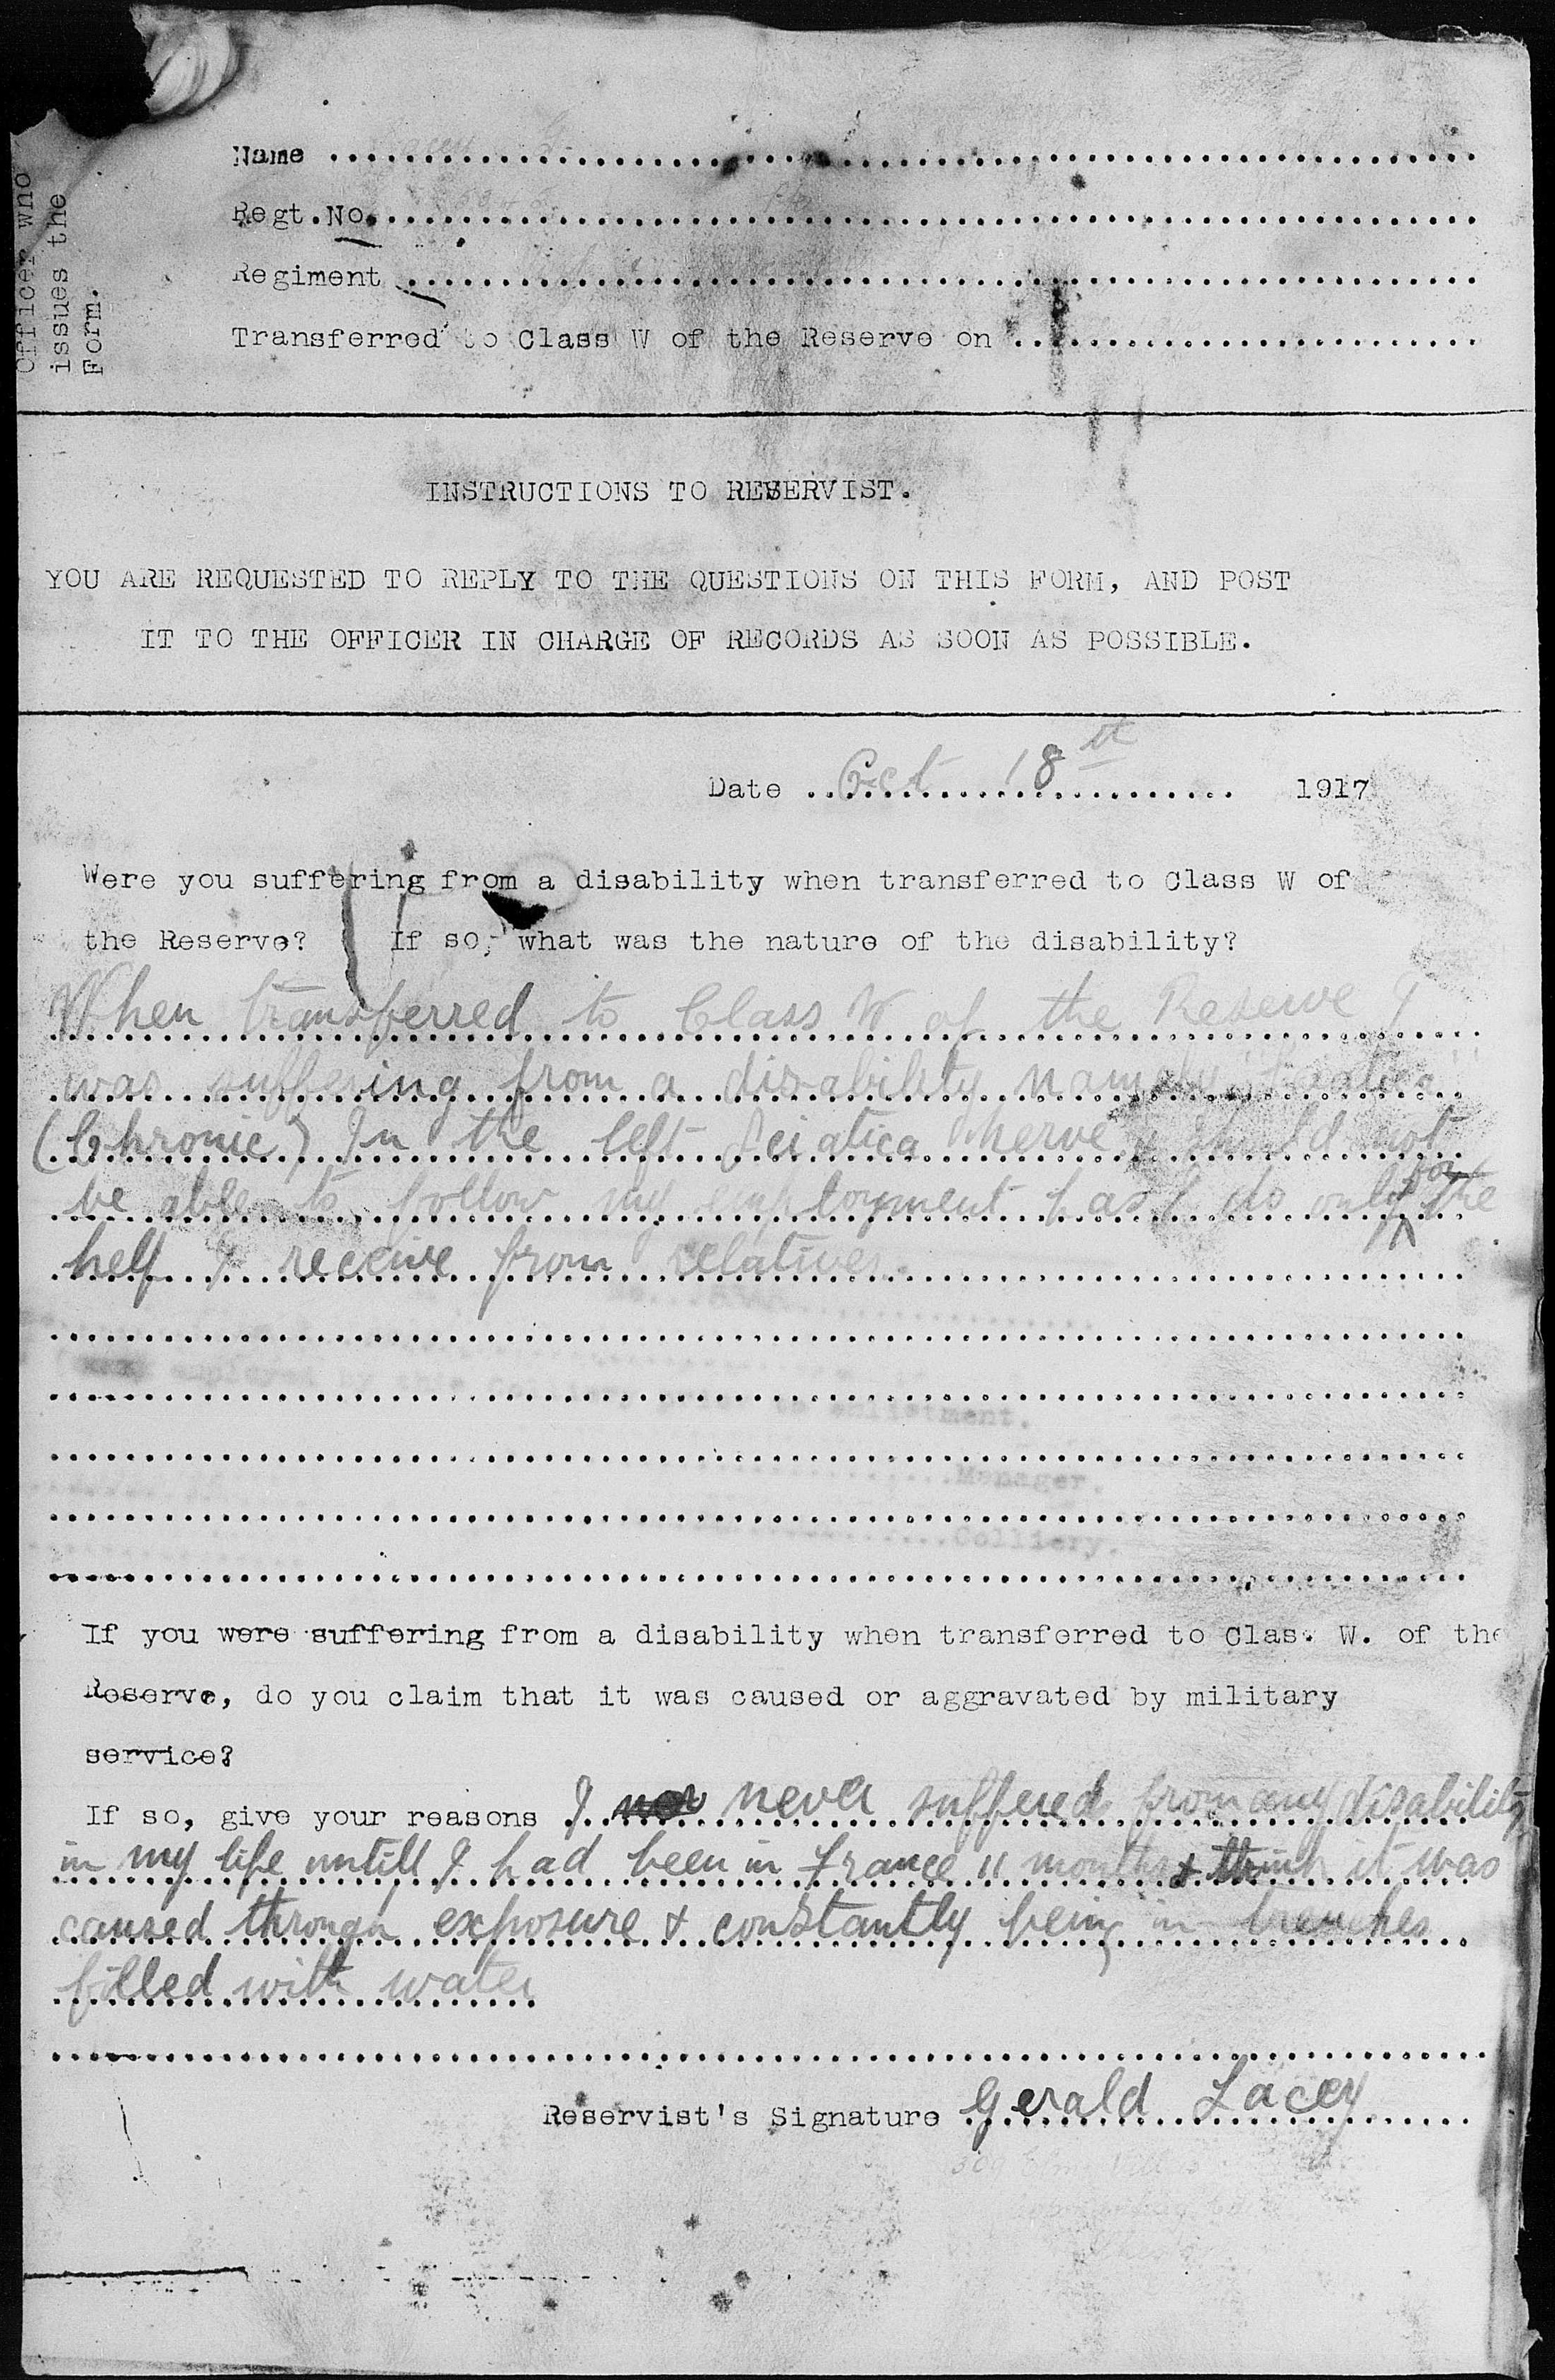 Officer who
issues the
Form.
Name
Regt. No.
Regiment
Transferred to Class W of the Reserve on
INSTRUCTIONS TO RESERVIST.
YOU ARE REQUESTED TO REPLY TO THE QUESTIONS ON THIS FORM, AND POST
IT TO THE OFFICER IN CHARGE OF RECORDS AS SOON AS POSSIBLE.
Date Oct 18th 1917
Were you suffering from a disability when transferred to Class W of
the Reserve? If so, what was the nature of the disability?
When transferred to Class W of the Reserve I
was suffering from a disability namely
(Chronic) In the left Sciatica nerve & should not
be able to follow my employment has I do only for the
help I receive from relatives.
enlistment.
Manager.
Colliery.
If you were suffering from a disability when transferred to Clas. W. of the
Reserve, do you claim that it was caused or aggravated by military
service?
If so, give your reasons I never suffered from any disability
in my life untill I had been in France 11 months & think it was
caused through exposure & constantly being in trenches
filled with water
Reservist's Signature Gerald Lacey